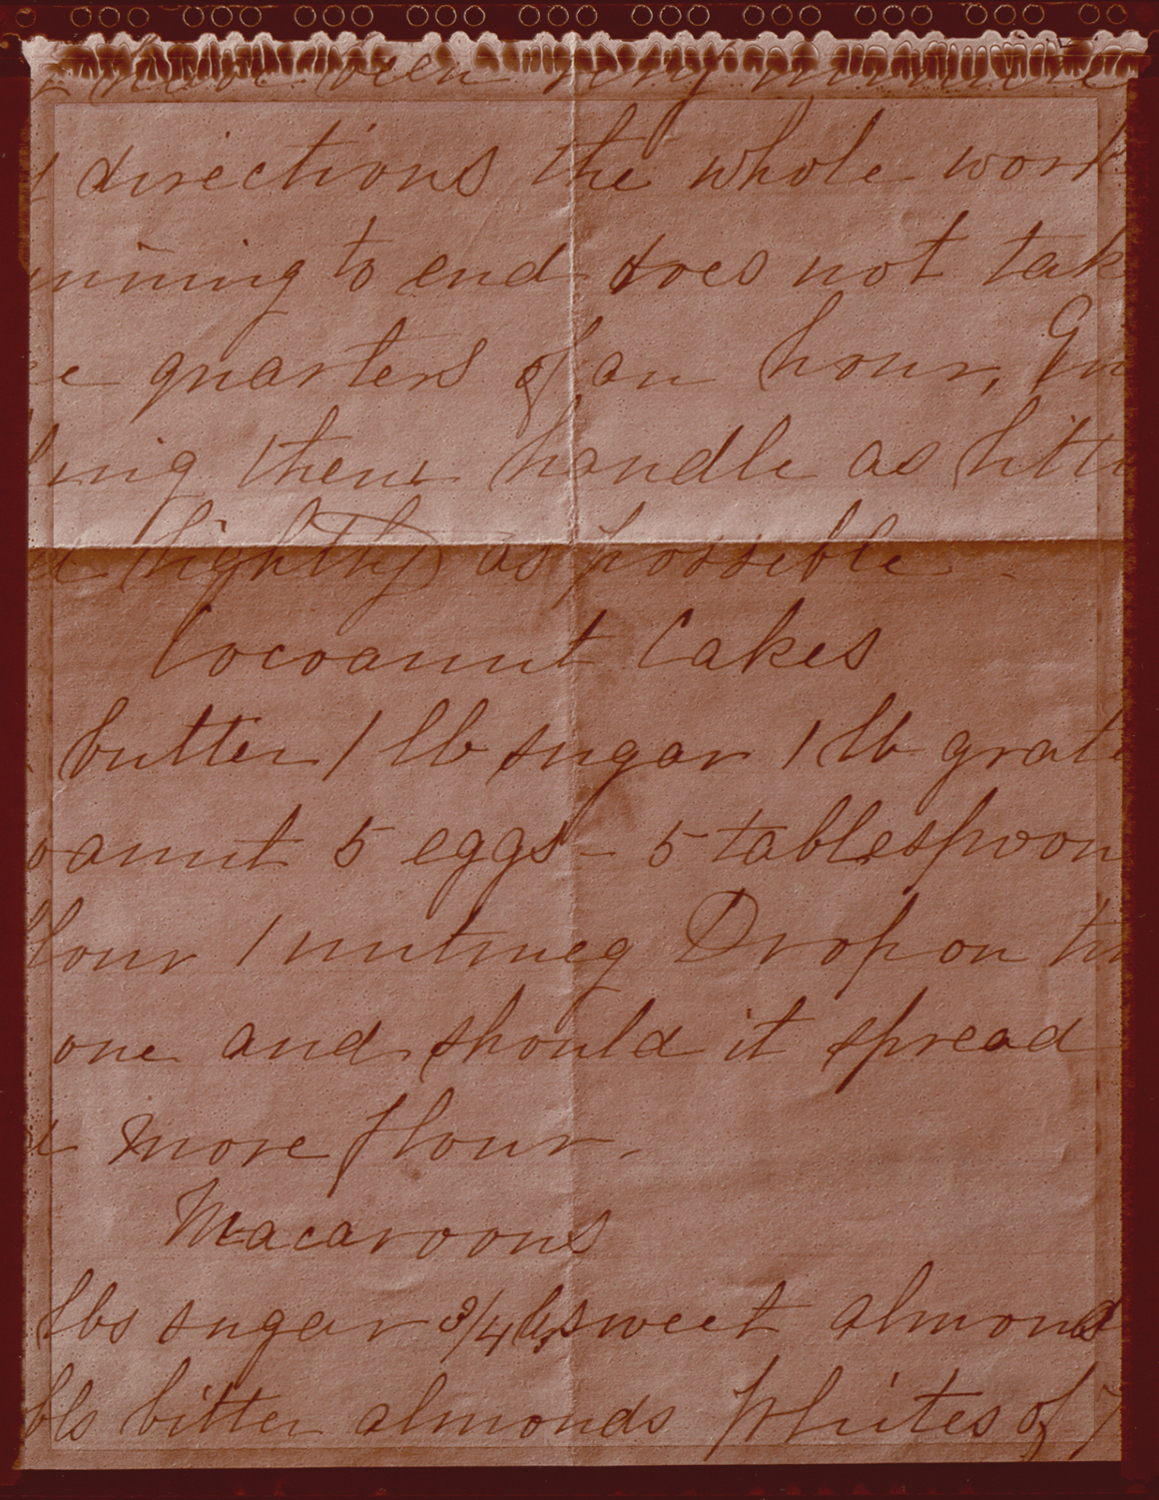 have been very
directions the whole work
inning to end does not tak
ee quarters of an hour, In
ing them handle as littl
d lightly as possible
Cocoanut Cakes
butter 1 lb sugar 1 lb grate
oanut 5 eggs - 5 tablespoon
flour 1 nutmeg Drop on tin
one and should it spread
d more flour.
Macaroons
lbs sugar 3/4 lb sweet almond
lbs bitter almonds Whites of 7